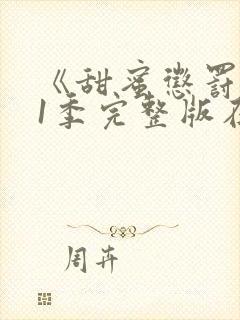 《甜蜜惩罚
1季完整版在
周卉